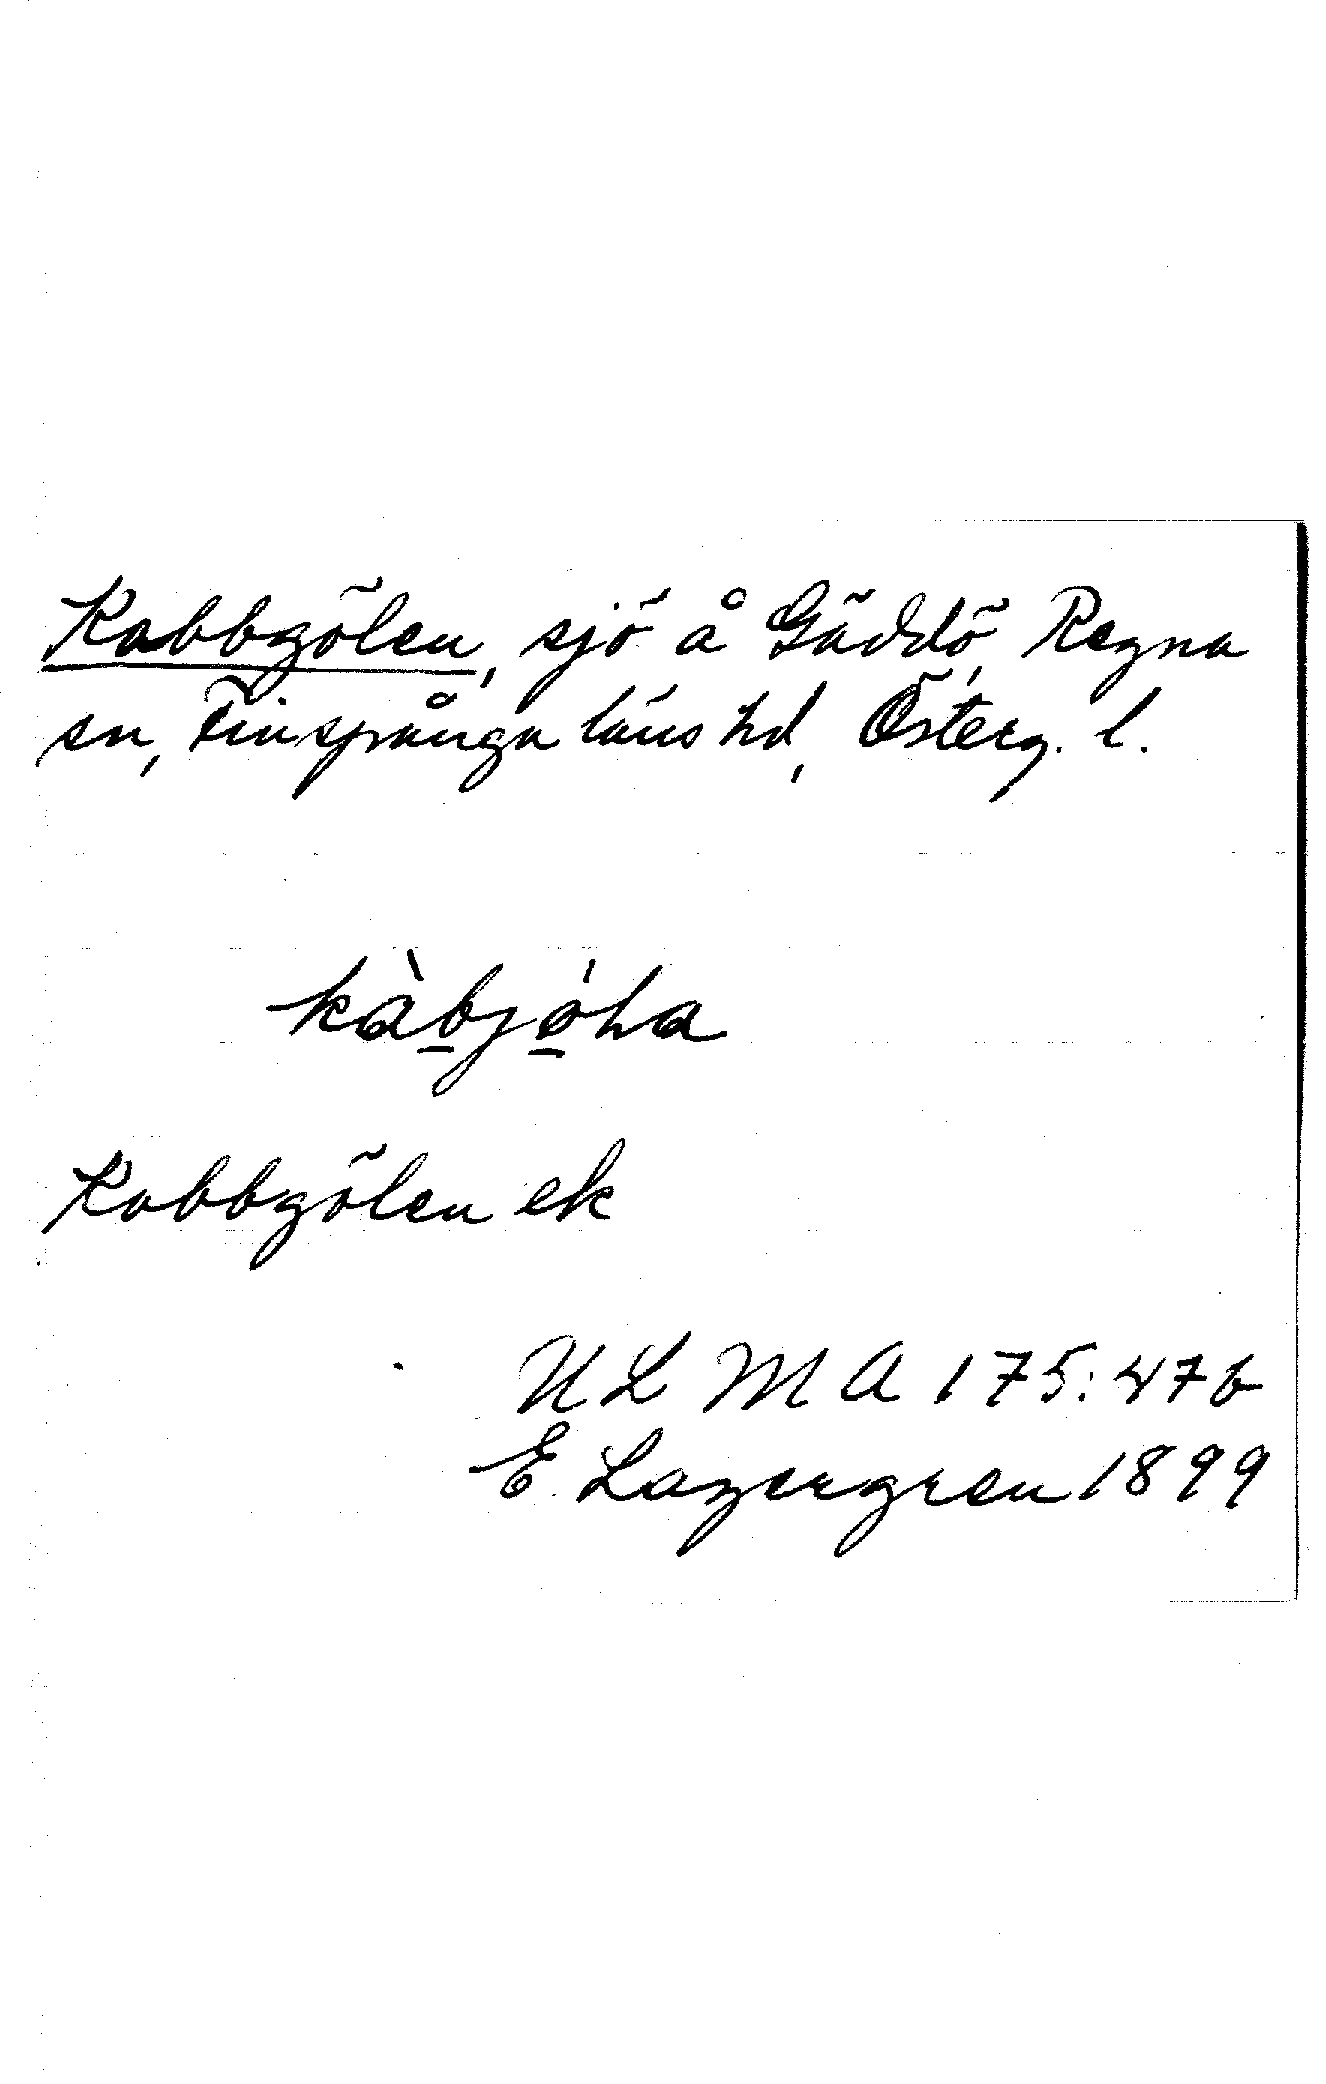 Kabbgölen, sjö å Gäddö, Regna
sn, Finspånga läns hd, Österg. l.
kàbjøLa
Kabbgölen ek
ULMA 175:47b
E. Lagergren 1899